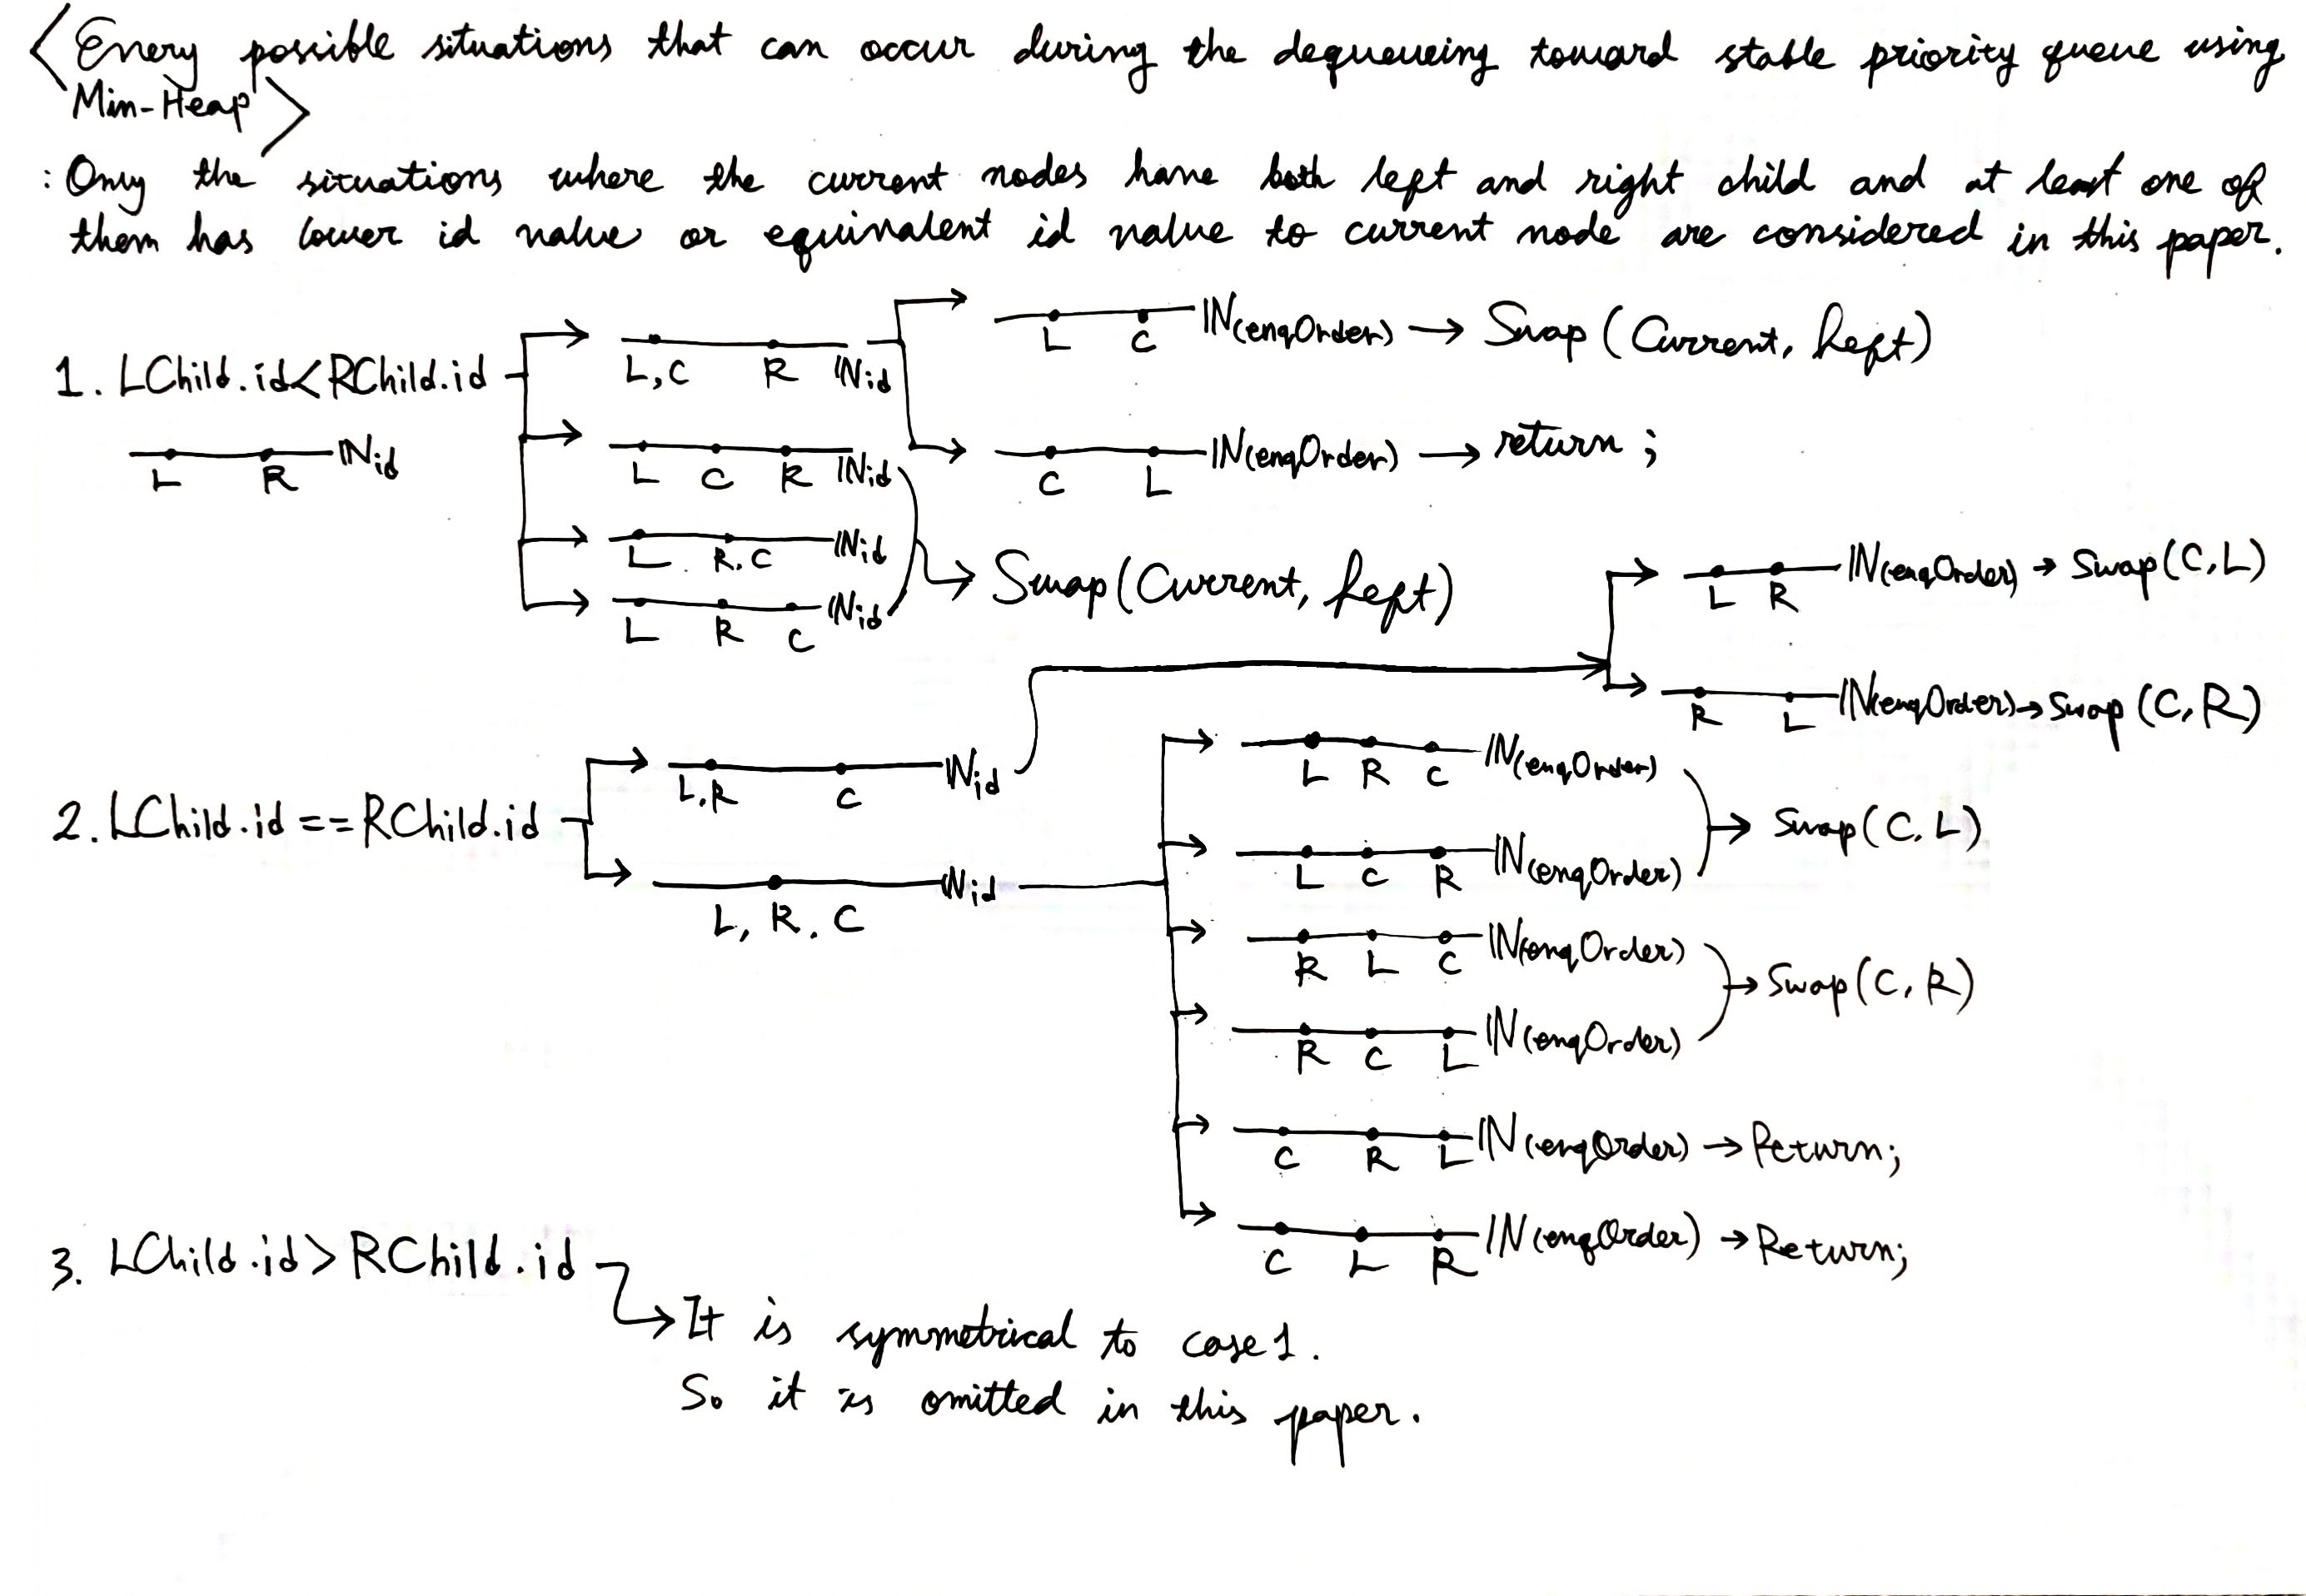 <Every possible situations that can occur during the dequeueing toward stable priority queue using
Min-Heap>
: Only the situations where the current nodes have both left and right child and at least one of
them has lower id value or equivalent id value to current node are considered in this paper.
1. LChild.id<RChild.id
L R ℕid
L,C R ℕid
L C ℕ(enqOrder) → Swap (Current, Left)
C L ℕ(enqOrder) → return ;
L C R ℕid
L R,C ℕid
L R C ℕid
→ Swap (Current, Left)
2. LChild.id == RChild.id
L,R C ℕid
L R ℕ(enqOrder) → Swap (C,L)
R L ℕ(enqOrder) → Swap (C,R)
L, R, C ℕid
L R C ℕ(enqOrder)
L C R ℕ(enqOrder)
→ Swap (C,L)
R L C ℕ(enqOrder)
R C L ℕ(enqOrder)
→ Swap (C,R)
C R L ℕ(enqOrder) → Return;
C L R ℕ(enqOrder) → Return;
3. LChild.id > RChild.id
→ It is symmetrical to case 1.
So it is omitted in this paper.